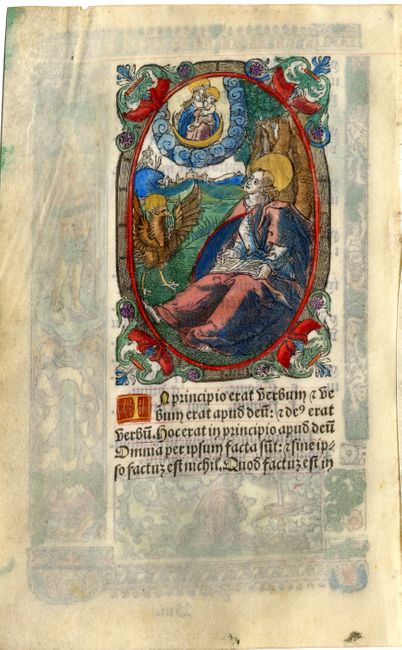 IN principio erat Verbum ⁊ ve
bum erat apud deū: ⁊ deꝰ erat
verbū. Hoc erat in principio apud deū
Omnia per ipsum facta sūt: ⁊ sine ip⸗
so factuꝫ est nichil. Quod factuꝫ est in